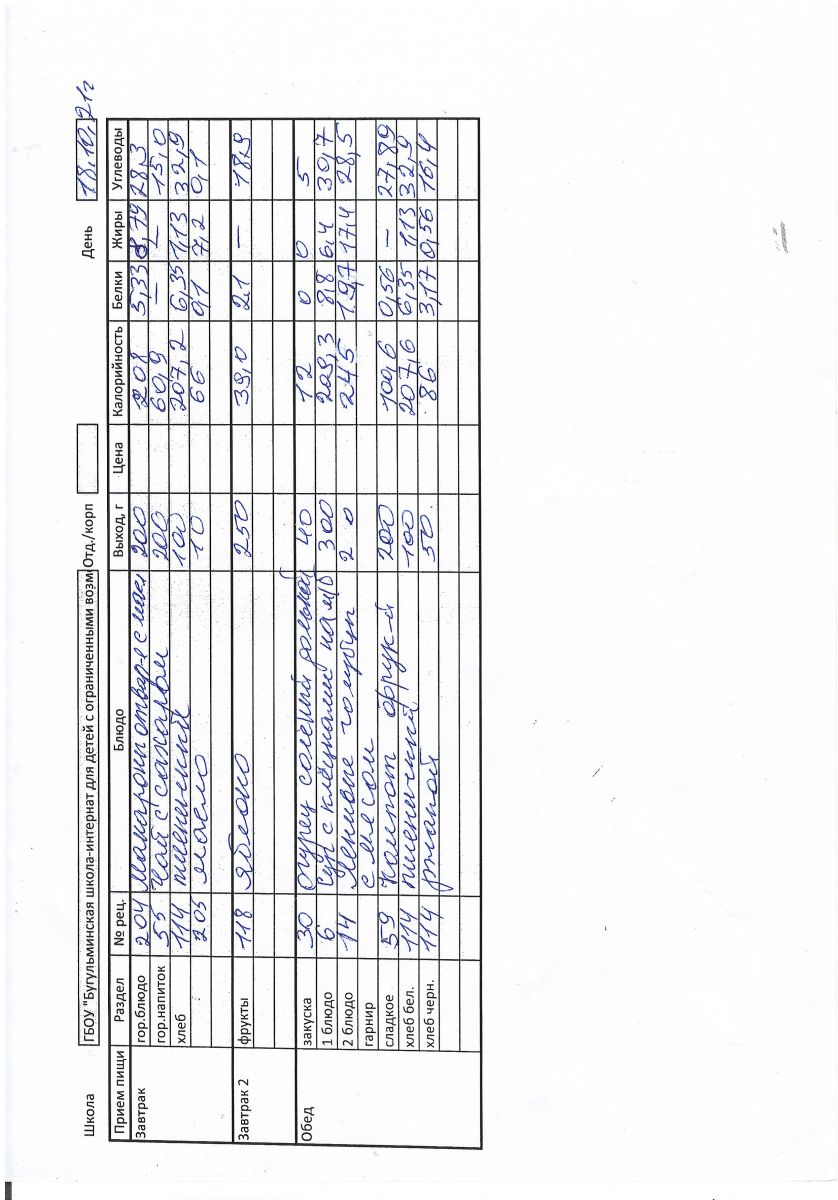 Школа ГБОУ "Бугульминская школа-интернат для детей с ограниченными возм Отд./корп День 18.10.21г
Прием пищи Раздел № рец. Блюдо Выход, г Цена Калорийность Белки Жиры Углеводы
Завтрак гор.блюдо 204 Макароны отвар-е с мас 200 208 5,33 8,79 28,3
гор.напиток 55 Чай с сахаром 200 60,9 — — 15,0
хлеб 114 пшеничный 100 207,2 6,35 1,13 32,9
205 масло 10 66 0,1 7,2 0,1
Завтрак 2 фрукты 118 яблоко 250 39,0 2.1 — 18,9
Обед закуска 30 Огурец соленый долькой 40 12 0 0 5
1 блюдо 6 Суп с клёцками на м/б 300 209,3 8,8 6,4 30,7
2 блюдо 14 Ленивые голубцы 2 0 245 19,7 17,4 28,5
гарнир с мясом
сладкое 59 Компот фрук-й 200 100,6 0,56 — 27,89
хлеб бел. 114 пшеничный 100 207,6 6,35 1,13 32,9
хлеб черн. 114 ржаной 50. 86 3,17 0,56 16,4